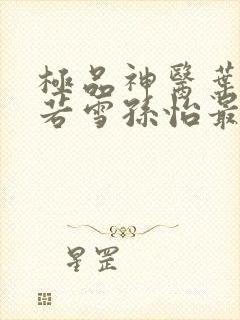 極品神醫葉
若雪孫怡最
星罡